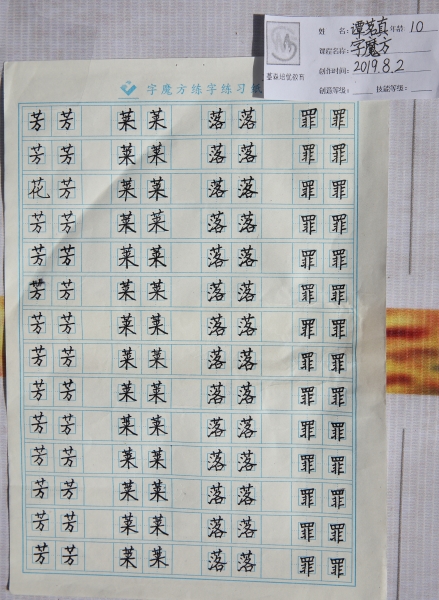 姓 名: 谭茗真 年龄: 10
课程名称: 字魔方
创作时间: 2019.8.2
创造等级: 技能等级:
字魔方练字练习纸
芳 芳 菜 菜 落 落 罪 罪
芳 芳 菜 菜 落 落 罪 罪
花 芳 菜 菜 落 落 罪 罪
芳 芳 菜 菜 落 落 罪 罪
芳 芳 菜 菜 落 落 罪 罪
芳 芳 菜 菜 落 落 罪 罪
芳 芳 菜 菜 落 落 罪 罪
芳 芳 菜 菜 落 落 罪 罪
芳 芳 菜 菜 落 落 罪 罪
芳 芳 菜 菜 落 落 罪 罪
芳 芳 菜 菜 落 落 罪 罪
芳 芳 菜 菜 落 落 罪 罪
芳 芳 菜 菜 落 落 罪 罪
芳 芳 菜 菜 落 落 罪 罪